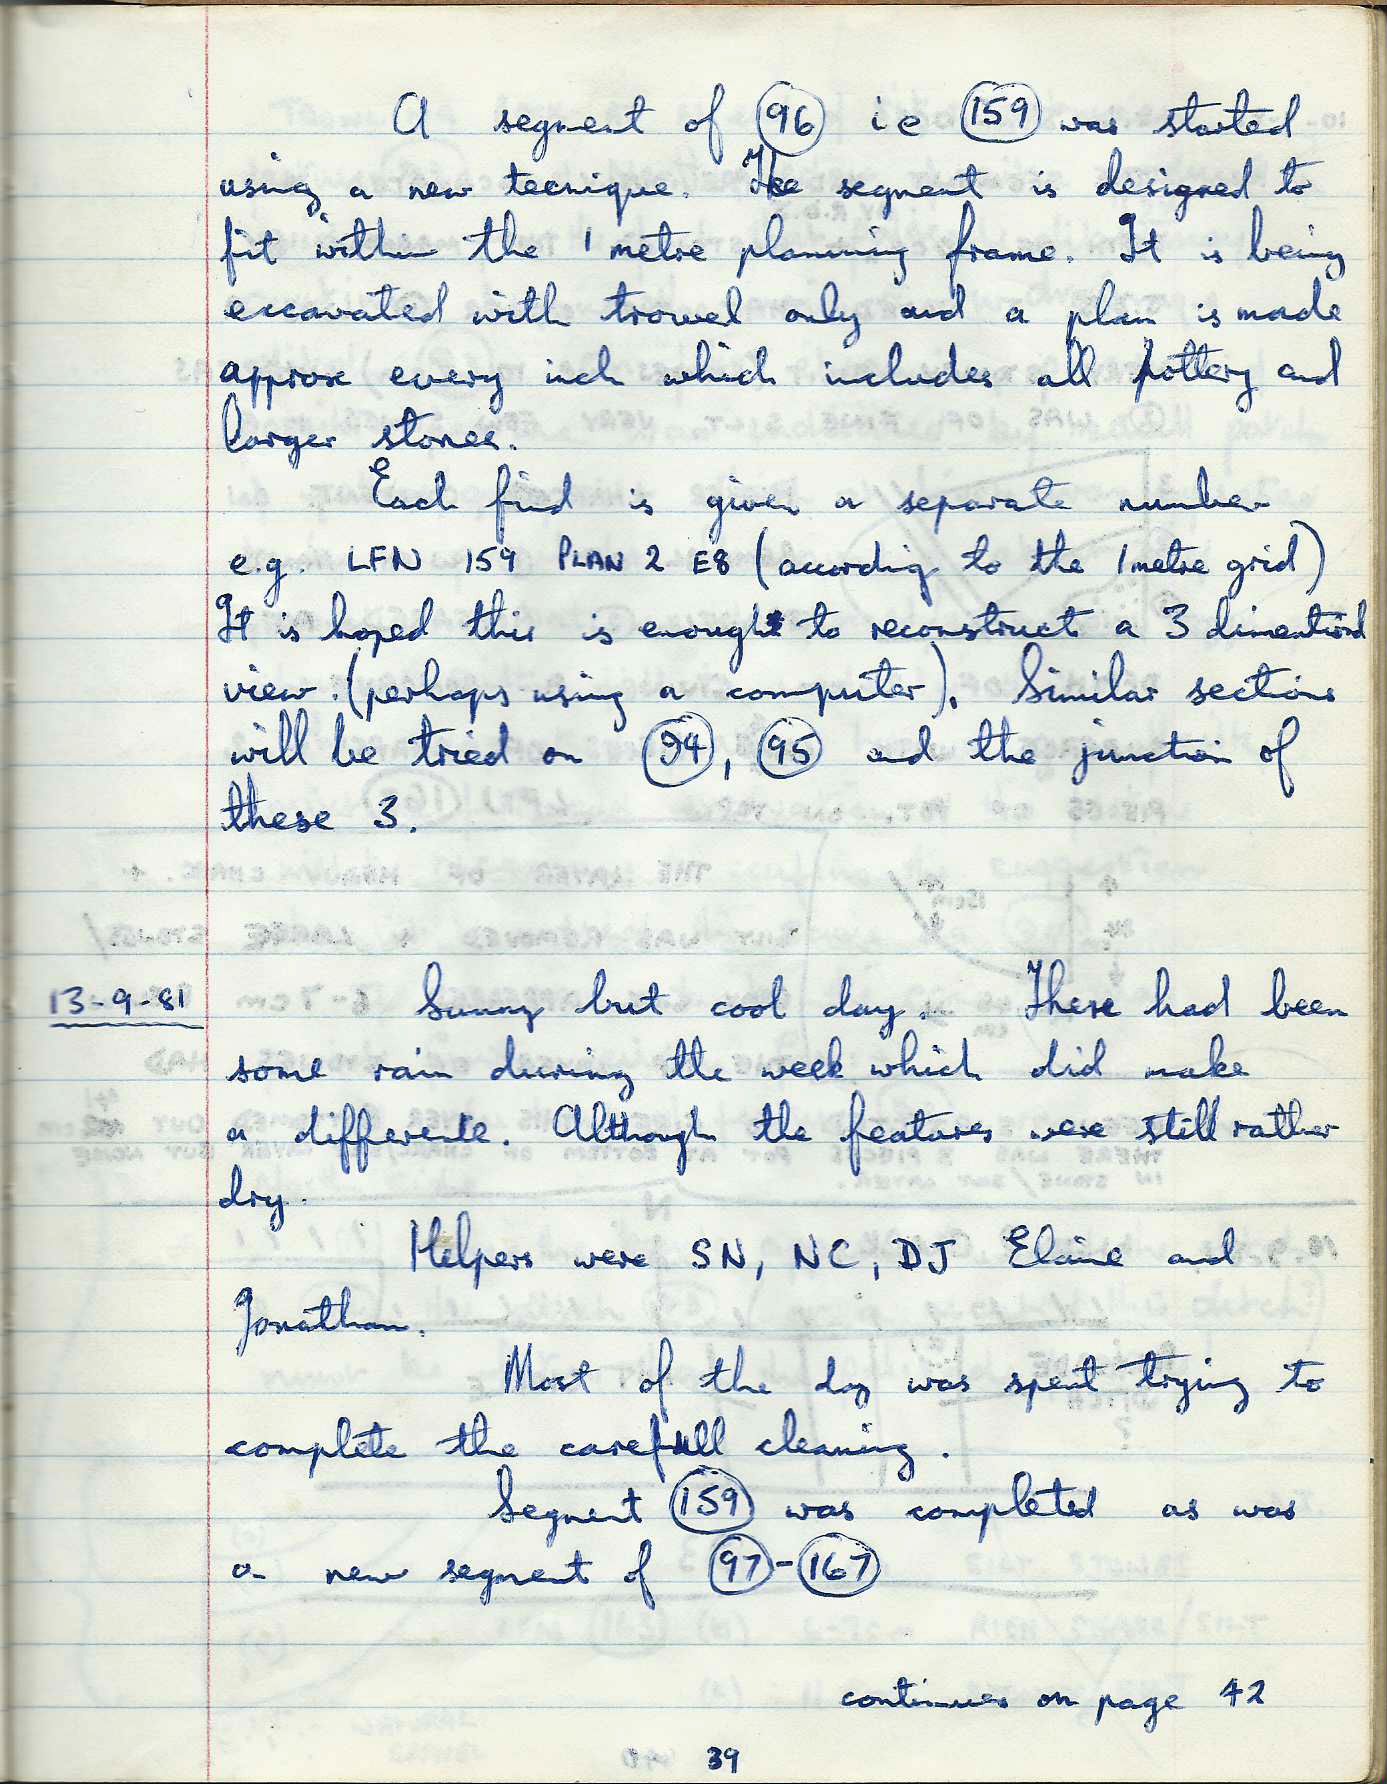 A segment of 96 ie 159 was started
using a new tecnique. The segment is designed to
fit within the 1 metre planning frame. It is being
excavated with trowel only and a plan is made
approx every inch which includes all pottery and
larger stones.
Each find is given a separate number
e.g. LFN 159 PLAN 2 E8 (according to the 1 metre grid)
It is hoped this is enough to reconstruct a 3 dimentional
view. (perhaps using a computer). Similar sections
will be tried on 94, 95 and the junction of
these 3.
13-9-81 Sunny but cool day. There had been
some rain during the week which did make
a difference. Although the features were still rather
dry.
Helpers were SN, NC, DJ Elaine and
Jonathan.
Most of the day was spent trying to
complete the carefull cleaning.
Segment 159 was completed as was
a new segment of 97-167
continues on page 42
39